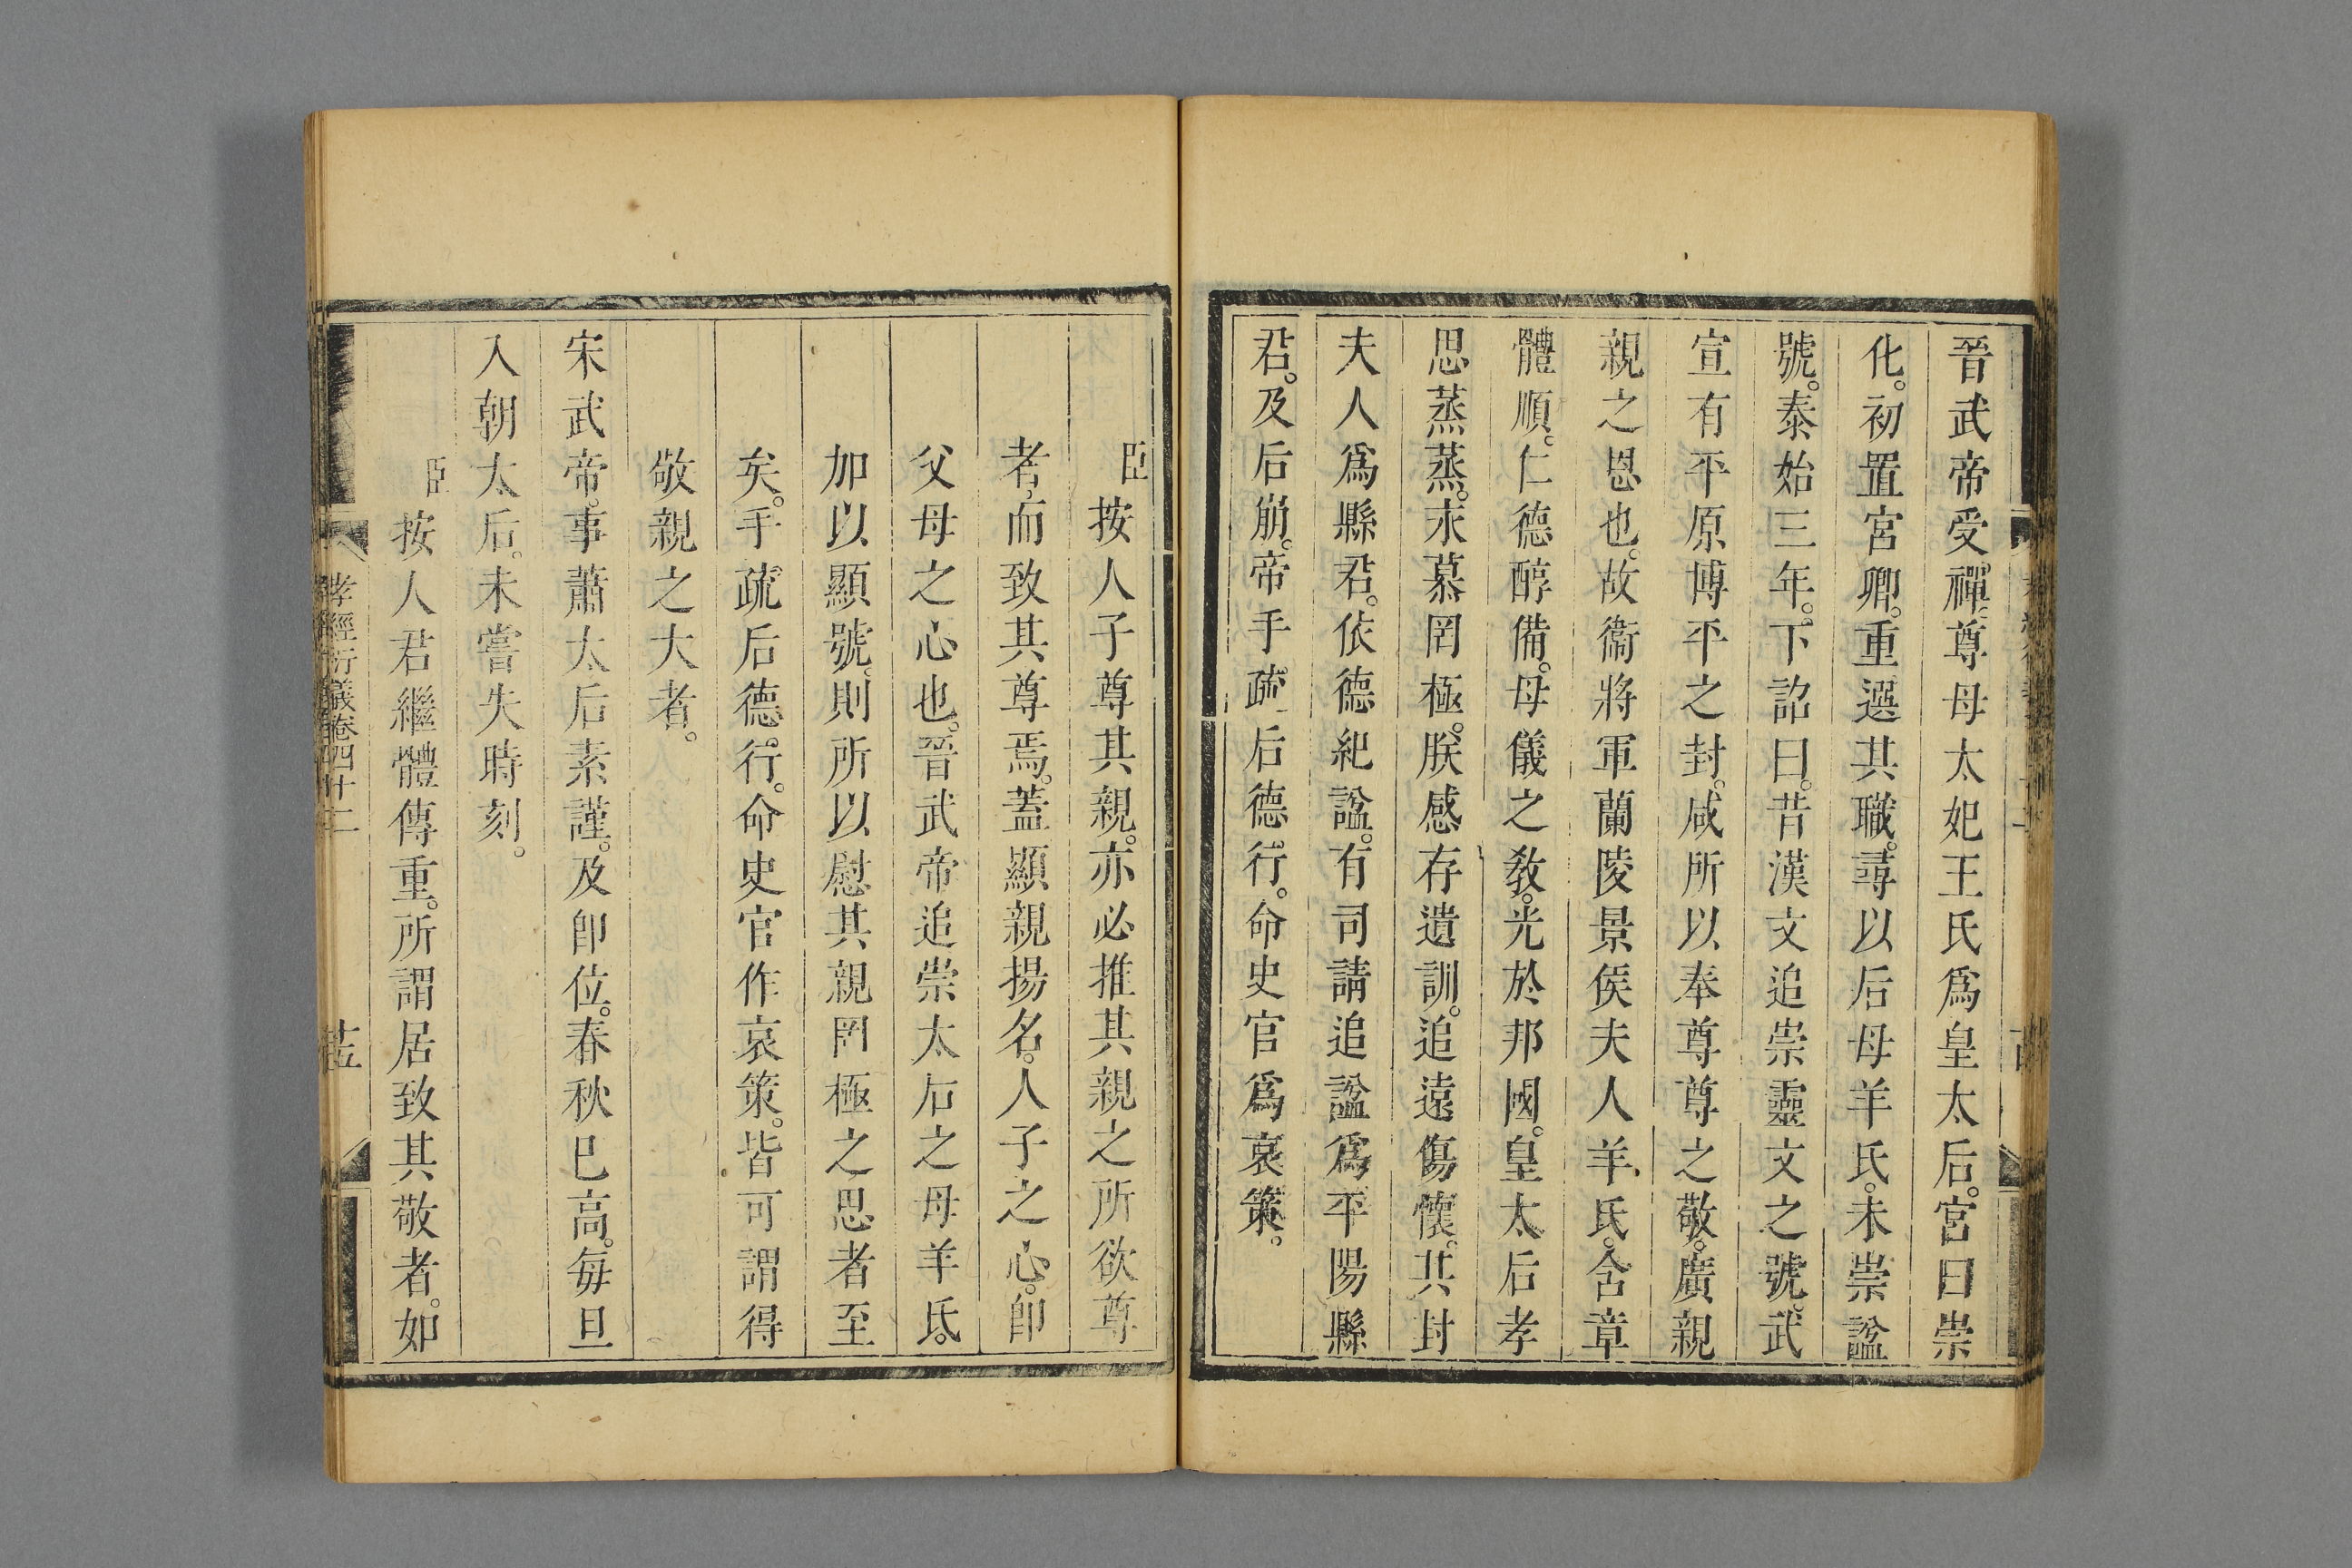 晉武帝受禪。尊母太妃王氏爲皇太后。宮曰崇
化。初置宮卿。重選其職。尋以后母羊氏。未崇諡
號。泰始三年。下詔曰。昔漢文追崇靈文之號。武
宣有平原博平之封。咸所以奉尊尊之敬。廣親
親之恩也。故衞將軍蘭陵景侯夫人羊氏。含章
體順。仁德醇備。母儀之敎。光於邦國。皇太后孝
思蒸蒸。永慕罔極。朕感存遺訓。追遠傷懷。其封
夫人爲縣君。依德紀諡。有司請追諡爲平陽縣
君。及后崩。帝手疏后德行。命史官爲哀策。
臣按人子尊其親。亦必推其親之所欲尊
者。而致其尊焉。蓋顯親揚名。人子之心。卽
父母之心也。晉武帝追崇太后之母羊氏。
加以顯號。則所以慰其親罔極之思者至
矣。手疏后德行。命史官作哀策。皆可謂得
敬親之大者。
宋武帝。事蕭太后素謹。及卽位。春秋已高。每旦
入朝太后。未嘗失時刻。
臣按人君繼體傳重。所謂居致其敬者。如
孝經衍義卷四十二